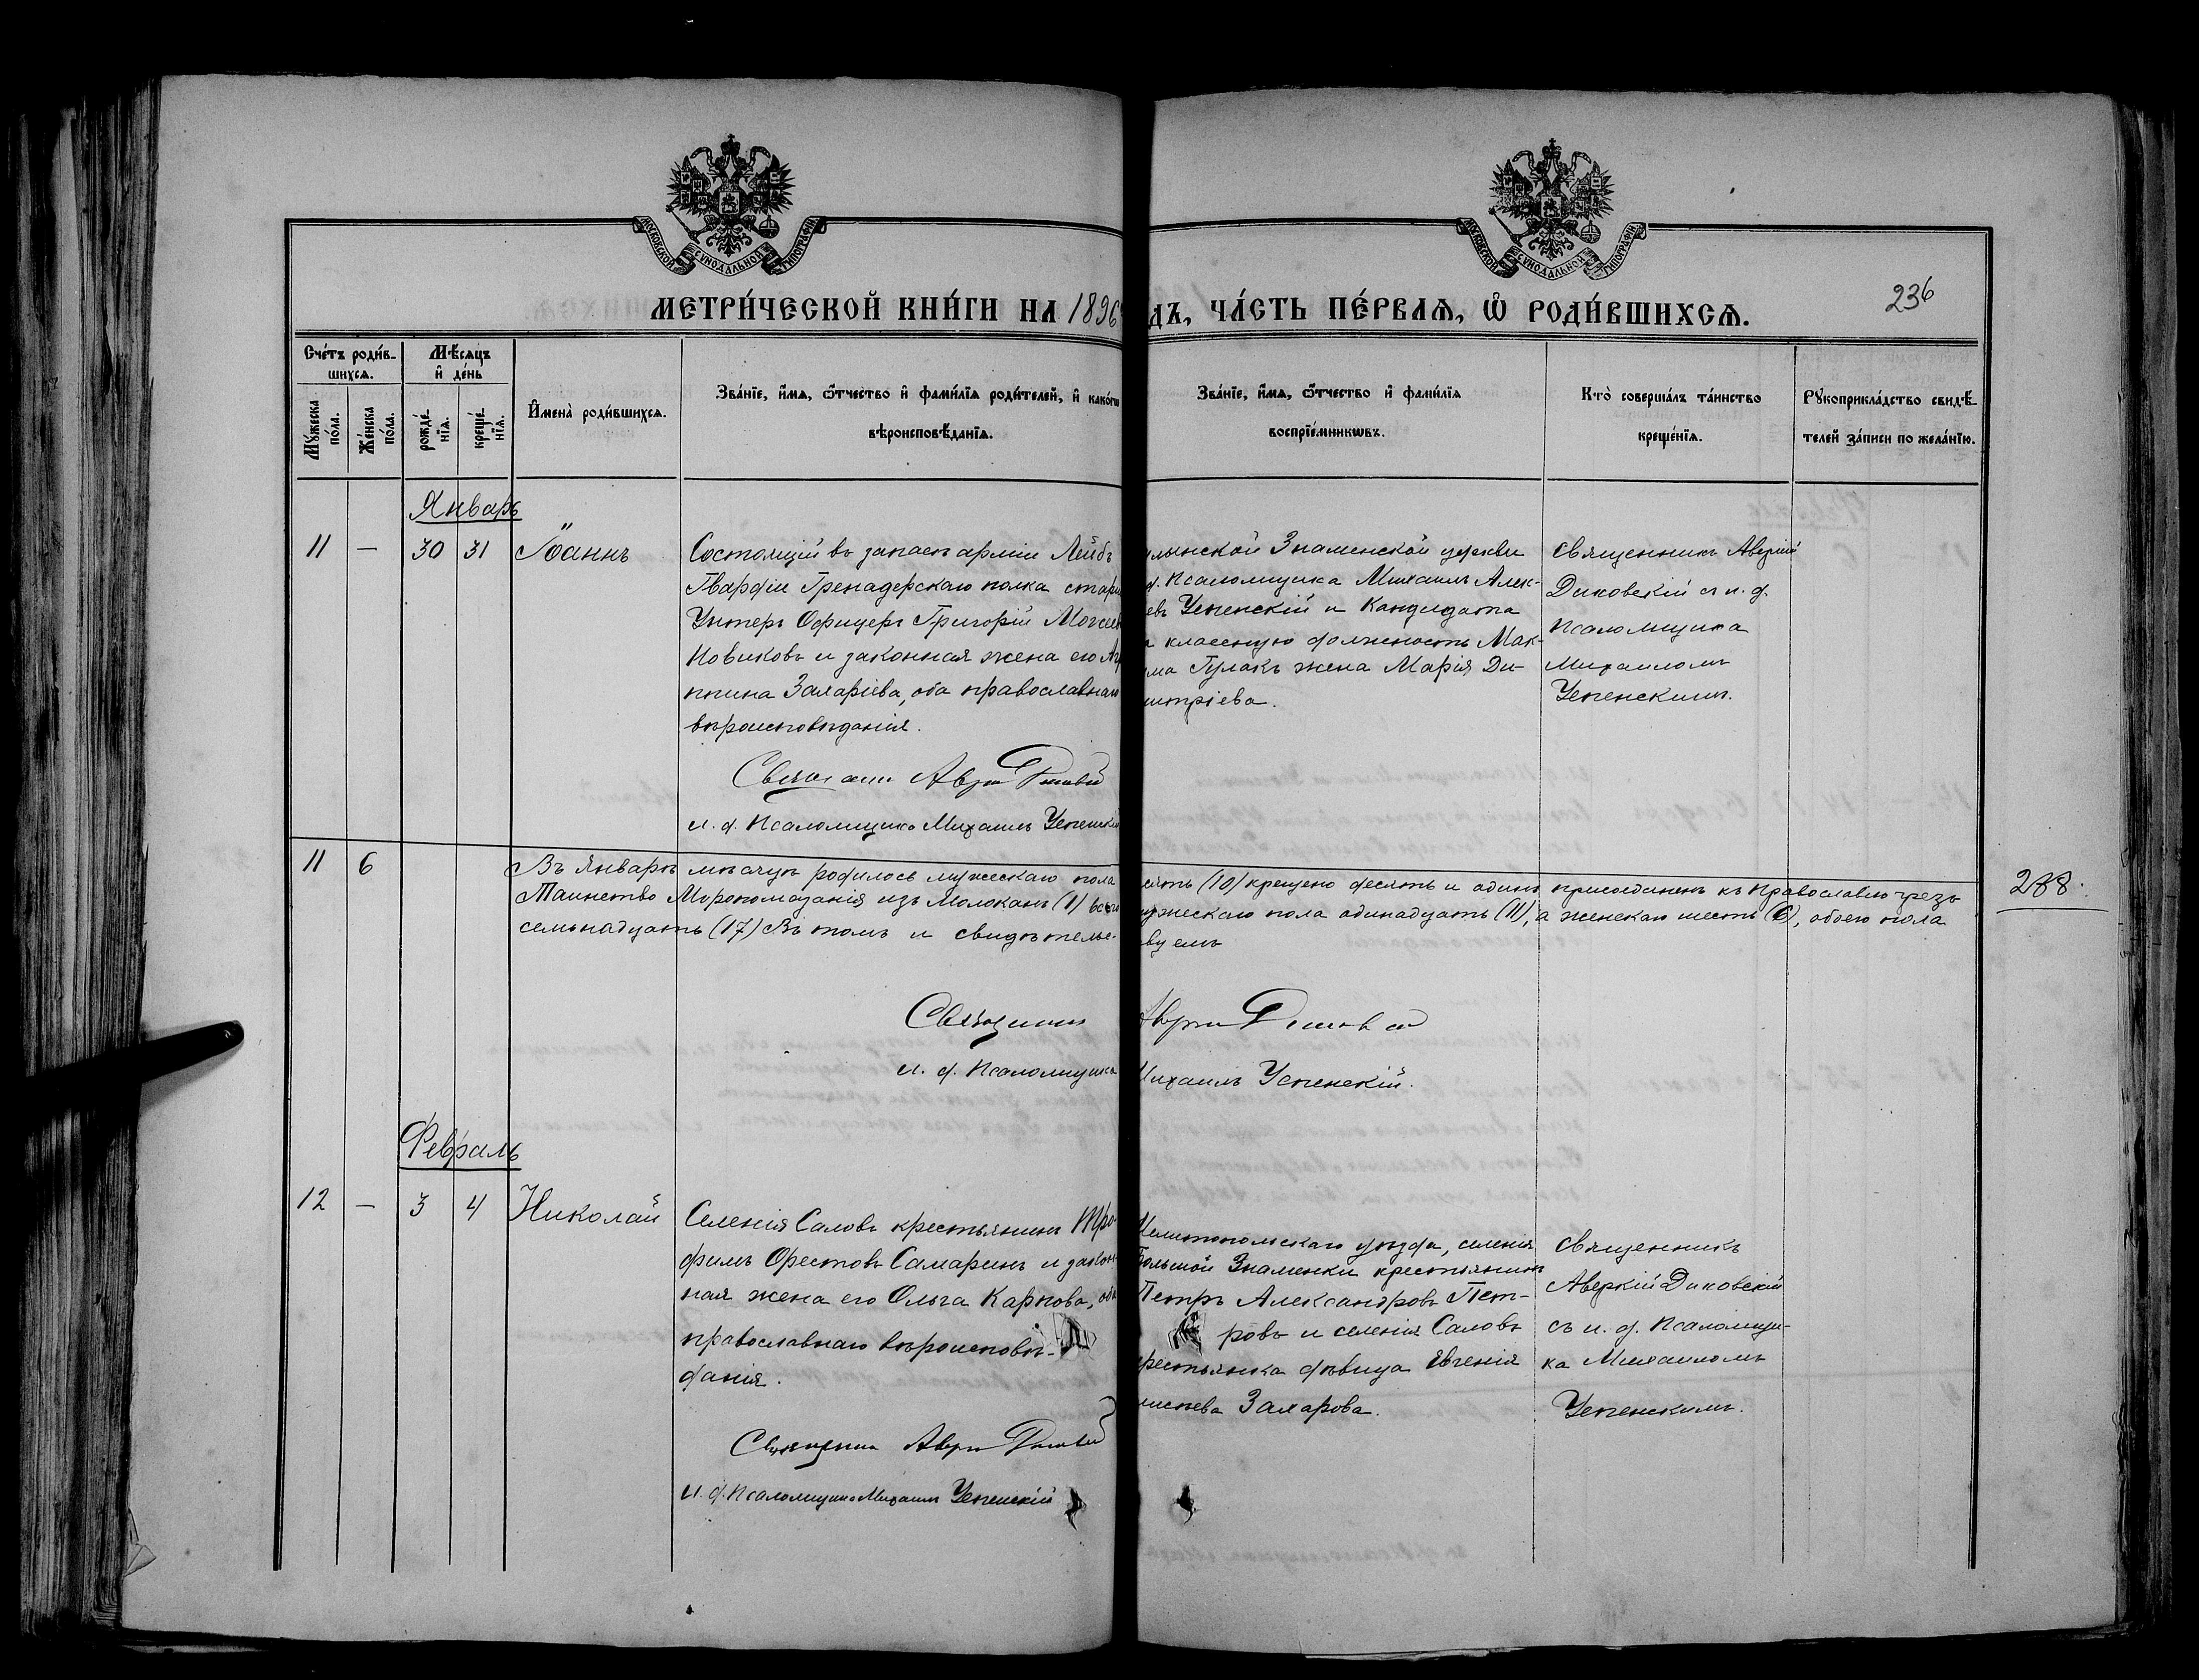 МОСКОВСКОЙ СѴНОДАЛЬНОЙ ТИПОГРАФІИ
МОСКОВСКОЙ СѴНОДАЛЬНОЙ ТИПОГРАФІИ
МЕТРИ́ЧЕСКОЙ КНИ́ГИ НА 1896
ДЪ, ЧА́СТЬ ПЕ́РВАѦ, Ѡ҆ РОДИ́ВШИХСѦ.
236
Сче́тъ роди́в-
шихсѧ.
Мѣ́сѧцъ
и҆ де́нь
Мꙋ́жеска
по́ла.
Же́нска
по́ла.
рожде́-
нїѧ.
креще́-
нїѧ.
И҆мена̀ роди́вшихсѧ.
Зва́нїе, и҆́мѧ, ѻ҆́тчество и҆ фами́лїѧ роди́телей, и҆ како́гѡ
вѣроисповѣ́данїѧ.
Зва́нїе, и҆́мѧ, ѻ҆́тчество и҆ фами́лїѧ
воспрїе́мникѡвъ.
Кто̀ соверша́лъ та́инство
креще́нїѧ.
Рꙋкоприкла́дство свидѣ́-
телей за́писи по жела́нїю.
Январь
11 — 30 31 Іоаннъ
Состоящій въ запасѣ арміи Лейбъ
Гвардіи Гренадерскаго полка
Унтеръ Офицеръ Григорій
Новиковъ и законная жена его
ппина Захаріева, оба православнаго
вѣроисповѣданія.
и. д. Псаломщика Михаилъ Успенскій
лынской Знаменской церкви
д. Псаломщика Михаилъ Алек-
евъ Успенскій и Кандидата
классную должность Мак-
ма Гулакъ жена Марія Ди-
митріева.
Священникъ Аверкій
Диковскій съ и. д.
Псаломщика
Михаиломъ
Успенскимъ.
11 6
Въ Январѣ мѣсяцѣ родилось мужескаго пола
сять (10) крещено десять и одинъ присоединенъ къ Православію чрезъ
Таинство Мѵропомазанія изъ Молоканъ (1) всего
ужескаго пола одинадцать (11), а женскаго шесть (6), обоего пола
семьнадцать (17) Въ томъ и свидѣтельс-
вуемъ
288.
Священникъ
и. д. Псаломщика
Михаилъ Успенскій.
Февраль
12 — 3 4 Николай
Селенія Саловъ крестьянинъ Тро-
фимъ Орестовъ Самаринъ и закон-
ная жена его Ольга Карпова, оба
православнаго вѣроисповѣ-
данія.
и. д. Псаломщика Михаилъ Успенскій
Мелитопольскаго уѣзда, селенія
Большой Знаменки крестьянинъ
Петръ Александровъ Пет-
ровъ и селенія Саловъ
рестьянка дѣвица Евгенія
Захарова.
Священникъ
Аверкій Диковскій
съ и. д. Псаломщи-
ка Михаиломъ
Успенскимъ.